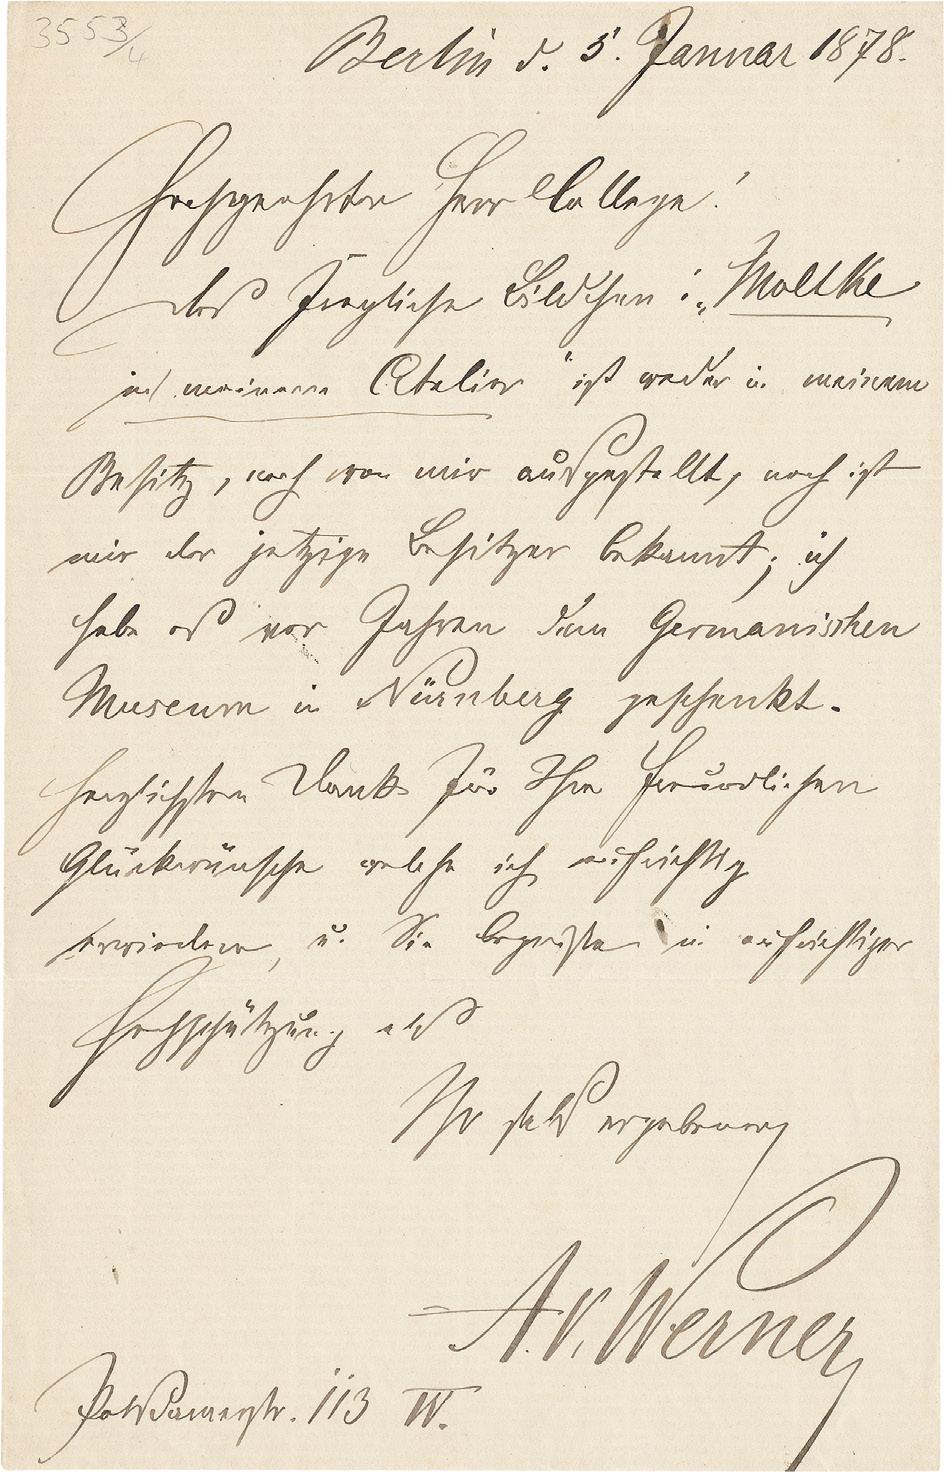 3553/4
Berlin d. 5. Januar 1878.
Hochgeehrter Herr College!
das fragliche Bildchen: „Moltke
in meinem Atelier" ist weder in meinem
Besitz, noch von mir ausgestellt, noch ist
mir der jetzige Besitzer bekannt; ich
habe es vor Jahren dem Germanischen
Museum in Nürnberg geschenkt.
Herzlichsten Dank für Ihre freundlichen
Glückwünsche welche ich aufrichtig
erwiedere, u. Sie begrüße in aufrichtiger
Hochschätzung als
Ihr stets ergebener
A. v. Werner
Potsdamerstr. 113 IV.